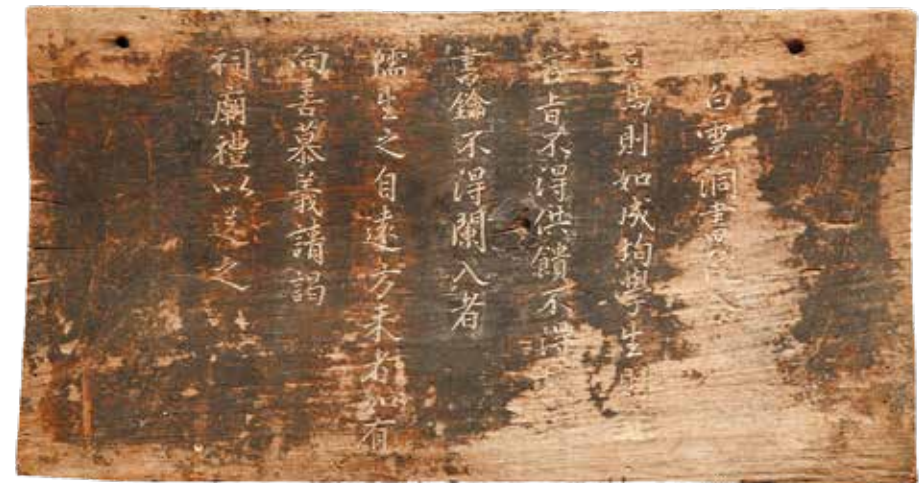 白雲洞書院
司馬則如成均學生則
皆不得供饋不得
書鑰不得闌入者
儒生之自遠方來者如有
向善慕義請謁
祠廟禮以送之